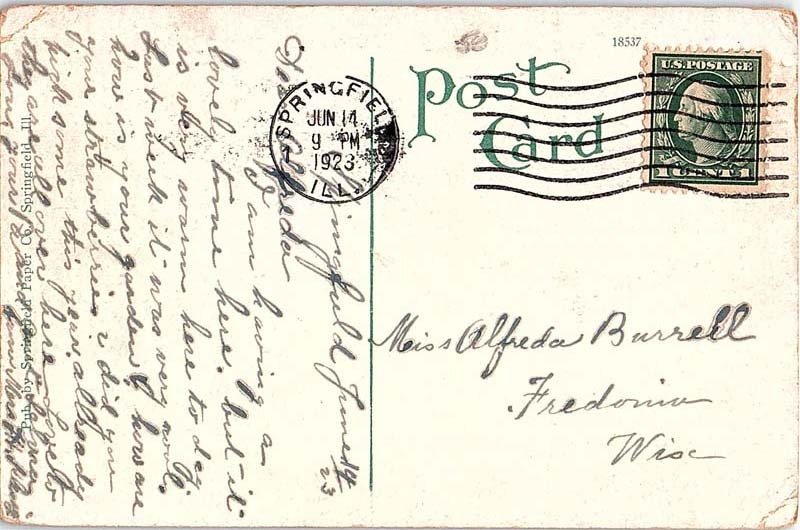 18537
Post
Card
U.S. POSTAGE
1 CENT 1
SPRINGFIELD
JUN 14
9 PM
1923
ILL.
Springfield June 14
23
Dear Alfreda
I am having a
lovely time here. but it
is very warm here to day.
Last week it was very cool.
how is your garden & how are
your strawberries & did you
high some this year already
they all over here
Pub. by Springfield Paper Co., Springfield, Ill.
Miss Alfreda Burrell
Fredonia
Wisc